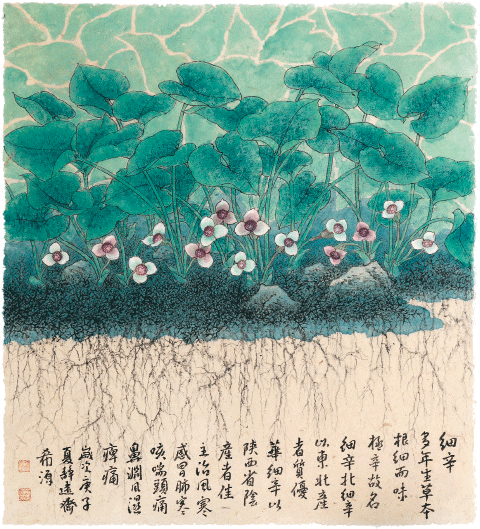 細辛
多年生草本
根細而味
極辛故名
細辛北細辛
以東北産
者質優
華細辛以
陝西省陰
産者佳
主治風寒
感冒肺寒
咳喘頭痛
鼻淵風濕
痺痛
歲次庚子
夏遠齋
希源